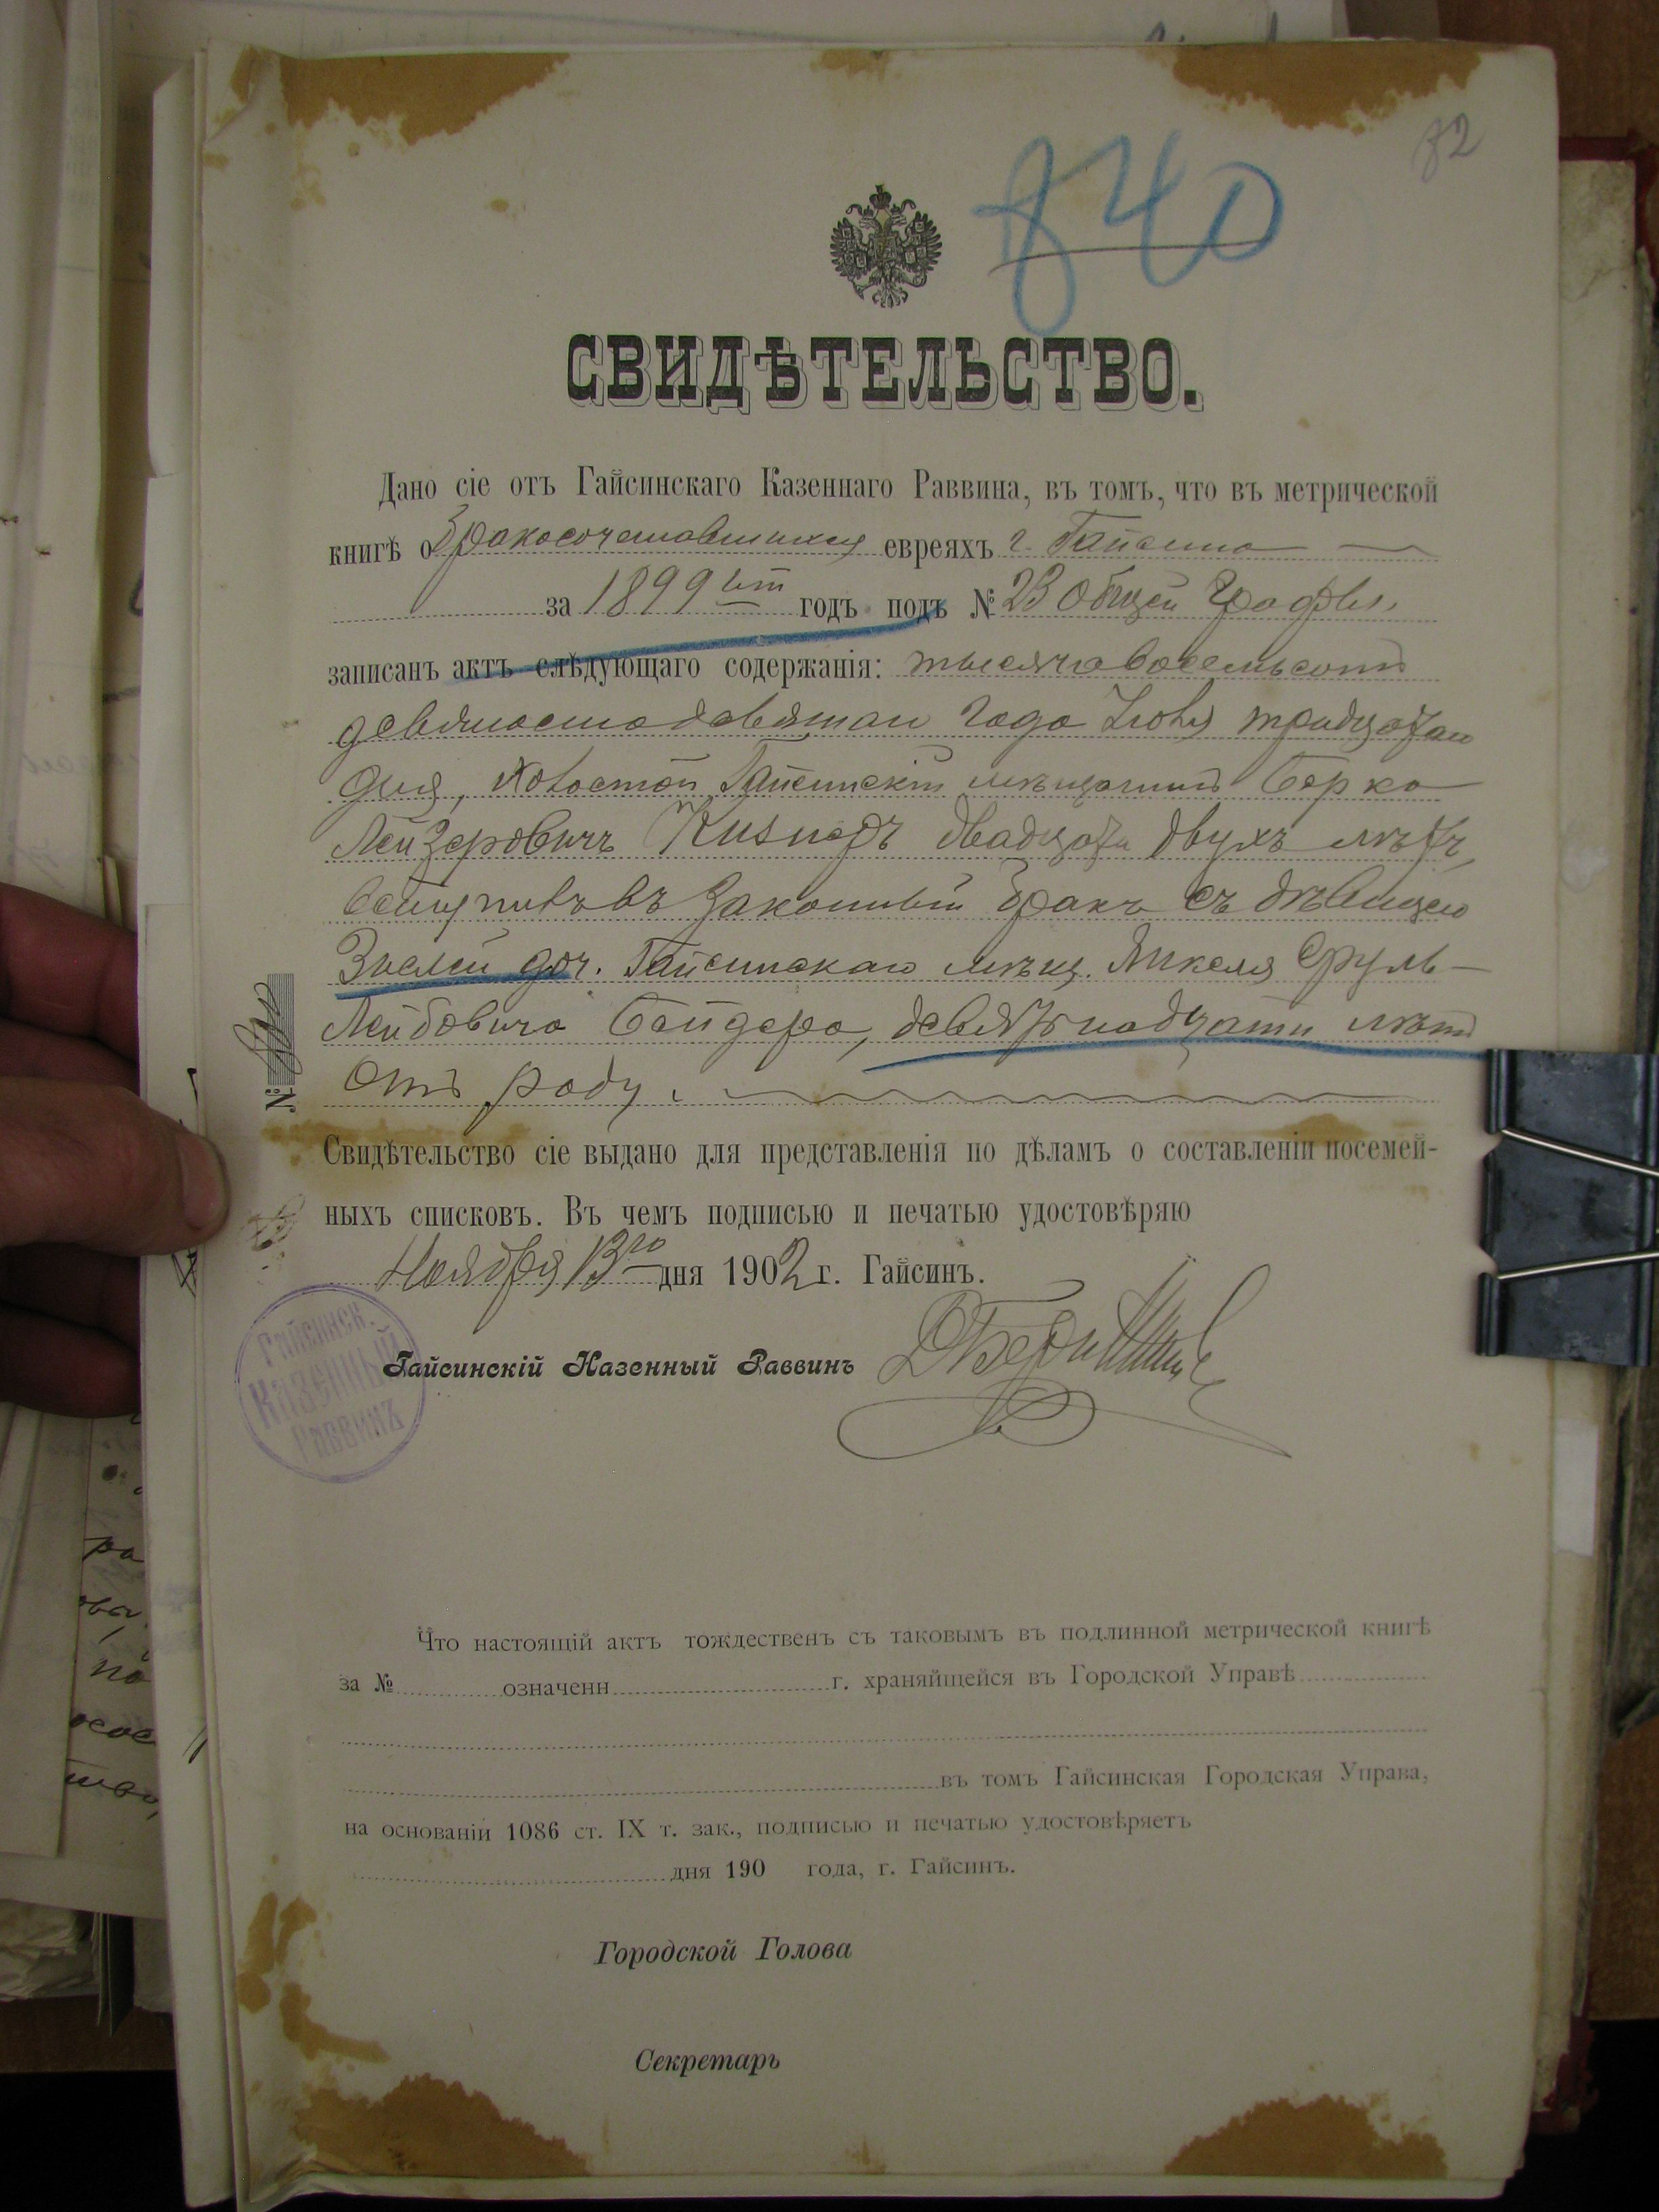 72
840
СВИДѢТЕЛЬСТВО.
Дано сіе отъ Гайсинскаго Казеннаго Раввина, въ томъ, что въ метрической
книгѣ о бракосочетавшихся евреяхъ г. Гайсина
за 1899 годъ подъ № 23 Общей Графы,
записанъ актъ слѣдующаго содержанія: тысяча восемьсотъ
девяносто девятаго года Іюня тридцатаго
дня, холостой Гайсинскій мѣщанинъ Берко
Лейзеровичъ Кизнеръ двадцати двухъ лѣтъ,
вступилъ въ законный бракъ съ дѣвицею
доч. Гайсинскаго мѣщ. Янкеля Сруль-
Лейбовича Бендера, девятнадцати лѣтъ
отъ роду.
№
Свидѣтельство сіе выдано для представленія по дѣламъ о составленіи посемей-
ныхъ списковъ. Въ чемъ подписью и печатью удостовѣряю
Ноября 13го дня 1902 г. Гайсинъ.
Гайсинскій Казенный Раввинъ
Гайсинск.
КАЗЕННЫЙ
Раввинъ
Что настоящій актъ тождественъ съ таковымъ въ подлинной метрической книгѣ
за № означенн г. храняйщейся въ Городской Управѣ
въ томъ Гайсинская Городская Управа,
на основаніи 1086 ст. IX т. зак., подписью и печатью удостовѣряетъ
дня 190 года, г. Гайсинъ.
Городской Голова
Секретарь